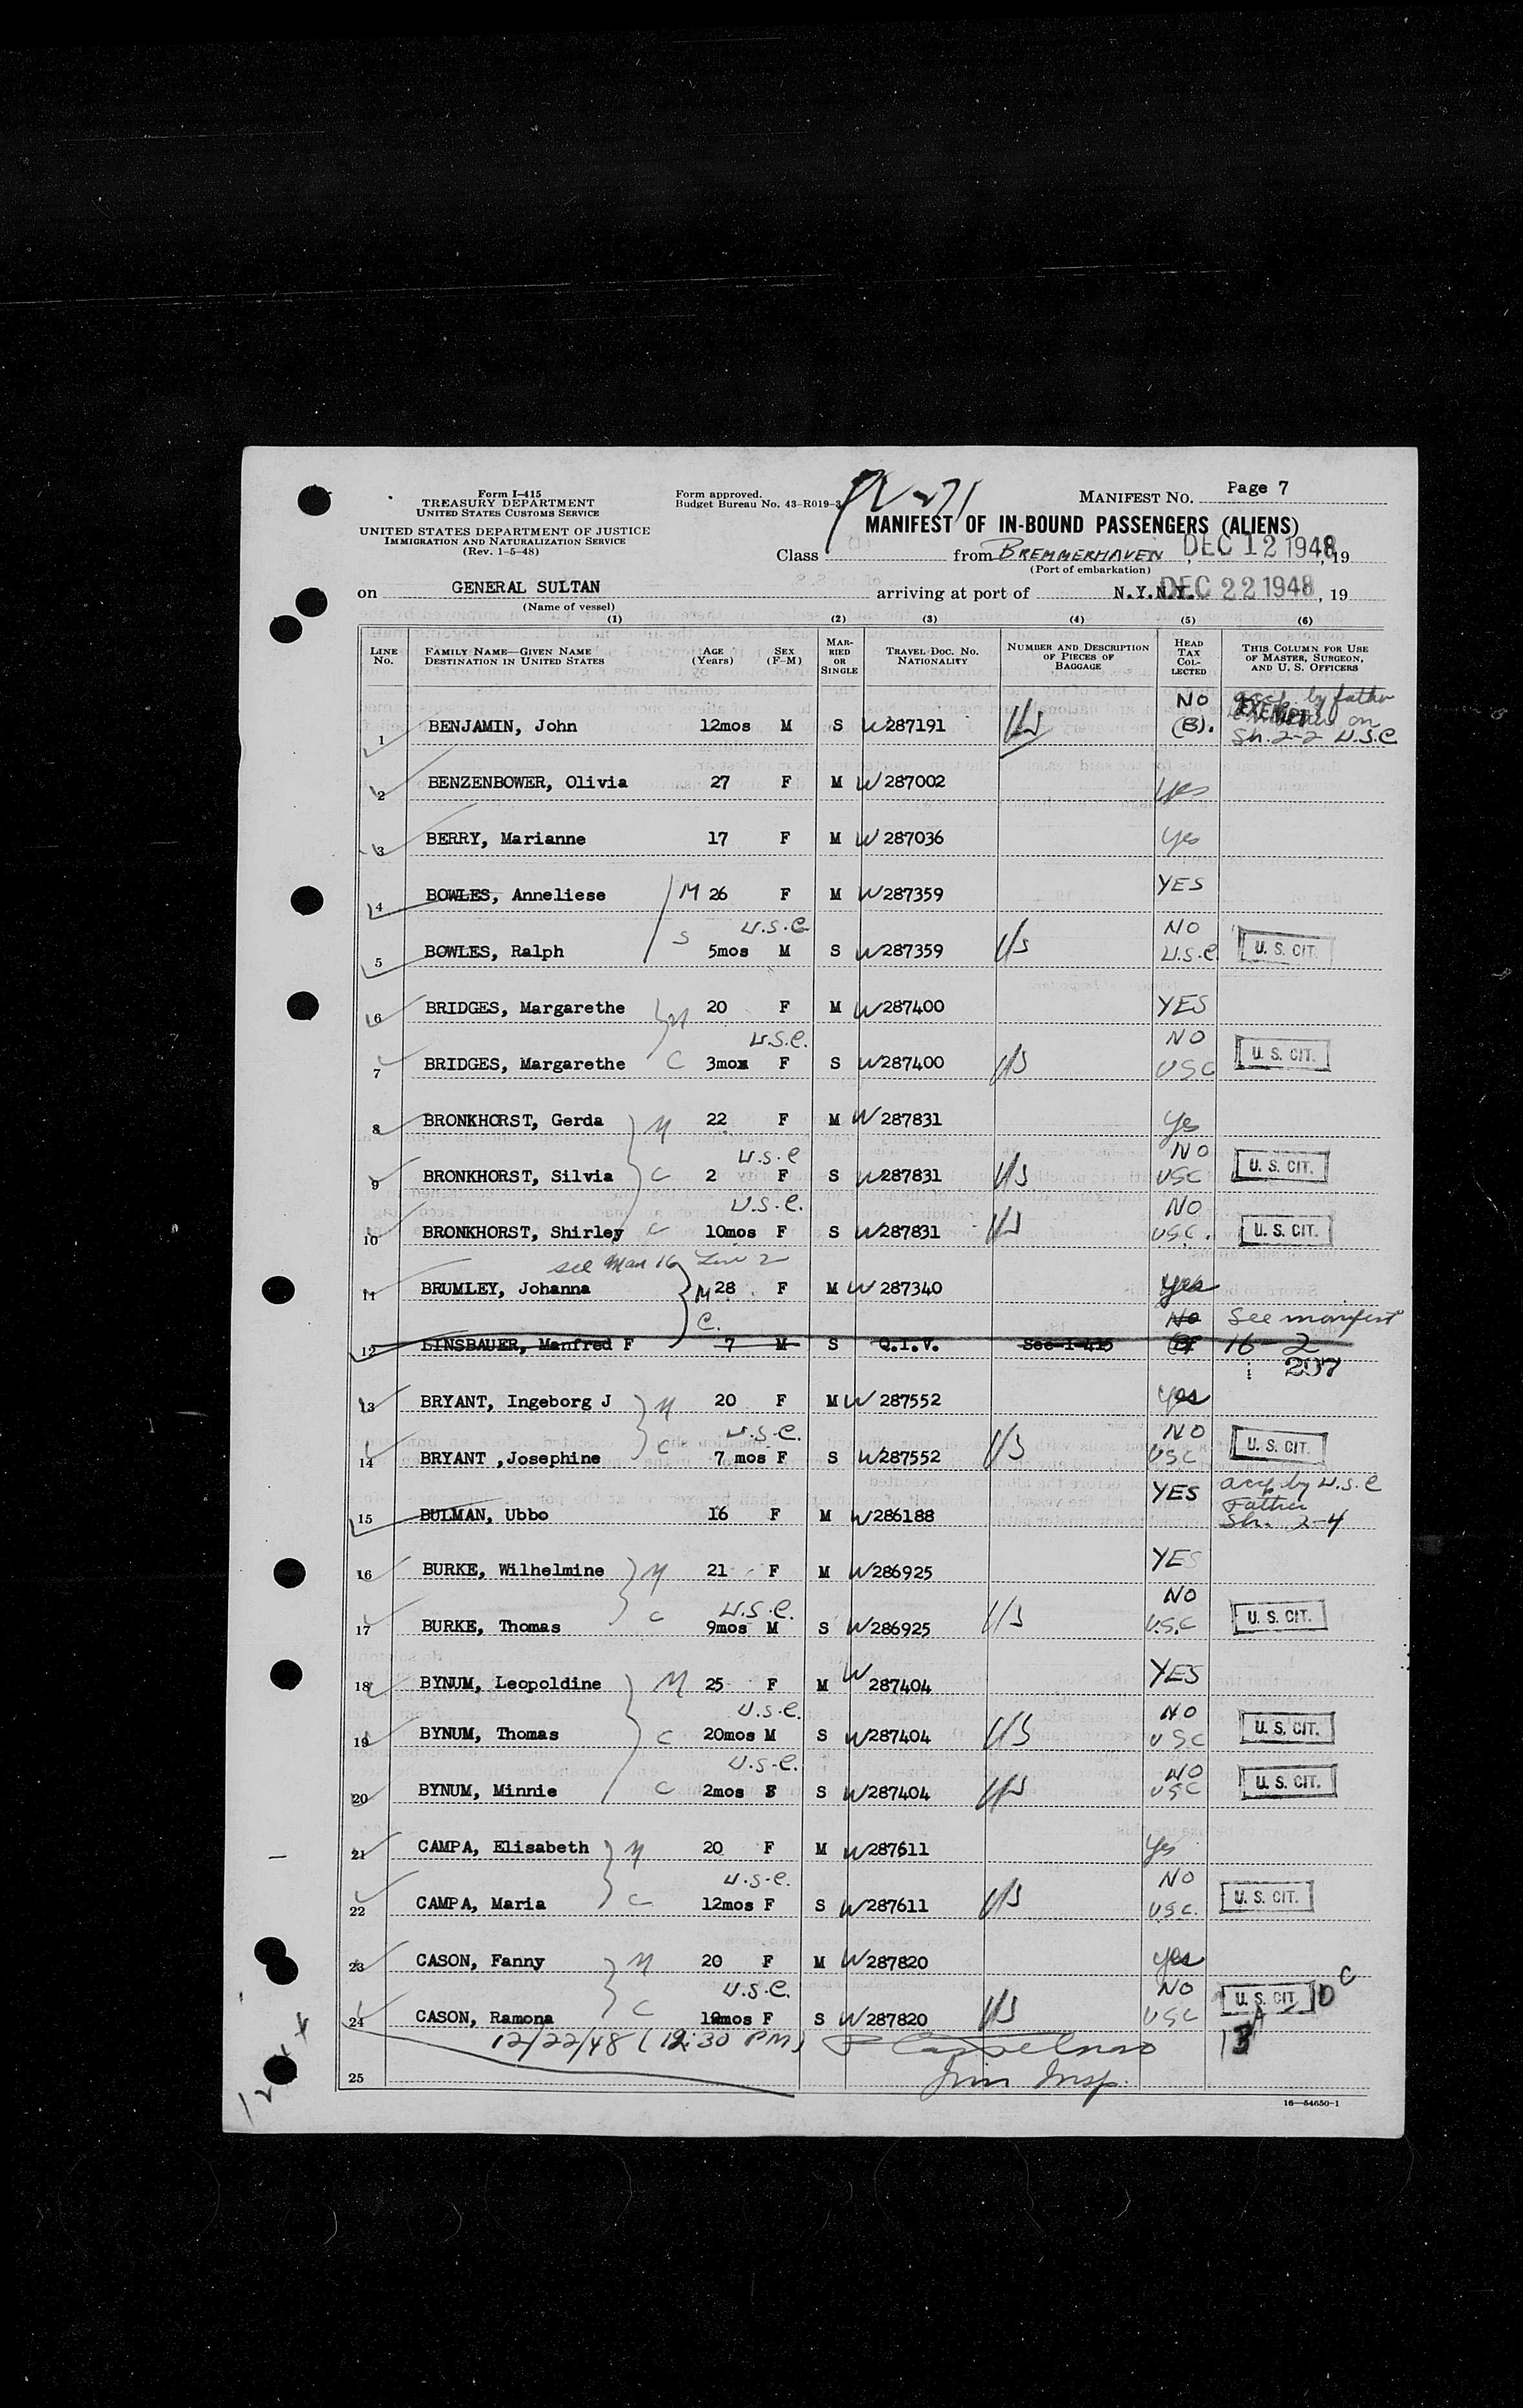 Form I-415
TREASURY DEPARTMENT
UNITED STATES CUSTOMS SERVICE
UNITED STATES DEPARTMENT OF JUSTICE
IMMIGRATION AND NATURALIZATION SERVICE
(Rev. 1-5-48)
Form approved.
Budget Bureau No. 43-R019-3
MANIFEST No. Page 7
MANIFEST OF IN-BOUND PASSENGERS (ALIENS)
Class from BREMMERHAVEN, DEC 12 1948, 19
(Port of embarkation)
on GENERAL SULTAN arriving at port of N.Y.N.Y. DEC 22 1948, 19
(Name of vessel)
(1) (2) (3) (4) (5) (6)
LINE No. FAMILY NAME—GIVEN NAME DESTINATION IN UNITED STATES AGE (Years) SEX (F-M) MARRIED OR SINGLE TRAVEL DOC. NO. NATIONALITY NUMBER AND DESCRIPTION OF PIECES OF BAGGAGE HEAD TAX COLLECTED THIS COLUMN FOR USE OF MASTER, SURGEON, AND U. S. OFFICERS
NO accp. by father
1 BENJAMIN, John 12mos M S W287191 (B). EXEMPT on
Sh. 2-2 U.S.C
2 BENZENBOWER, Olivia 27 F M W 287002 Yes
3 BERRY, Marianne 17 F M W 287036 Yes
4 BOWLES, Anneliese M 26 F M W287359 YES
S U.S.C NO
5 BOWLES, Ralph 5mos M S W287359 U.S.C. U. S. CIT.
6 BRIDGES, Margarethe M 20 F M W287400 YES
U.S.C. NO
7 BRIDGES, Margarethe C 3mos F S W287400 USC U. S. CIT.
8 BRONKHORST, Gerda M 22 F M W 287831 Yes
U.S.C NO
9 BRONKHORST, Silvia C 2 F S W287831 USC U. S. CIT.
U.S.C. NO
10 BRONKHORST, Shirley C 10mos F S W287831 USC. U. S. CIT.
see Man 16 Line 2
11 BRUMLEY, Johanna M 28 F M W 287340 Yes
C. No See manifest
12 LINSBAUER, Manfred F 7 M S Q.I.V. See-I-415 16-2
207
13 BRYANT, Ingeborg J M 20 F M W 287552 Yes
U.S.C. NO
14 BRYANT ,Josephine C 7 mos F S W287552 USC U. S. CIT.
15 BULMAN, Ubbo 16 F M W286188 YES accp by U.S.C
Father
Sh. 2-4
16 BURKE, Wilhelmine M 21 F M W286925 YES
U.S.C. NO
17 BURKE, Thomas C 9mos M S W286925 U.S.C U. S. CIT.
18 BYNUM, Leopoldine M 25 F M W 287404 YES
U.S.C. NO
19 BYNUM, Thomas C 20mos M S W287404 USC U. S. CIT.
U.S.C. NO
20 BYNUM, Minnie C 2mos S W287404 USC U. S. CIT.
21 CAMPA, Elisabeth M 20 F M W287611 Yes
U.S.C. NO
22 CAMPA, Maria C 12mos F S W287611 USC. U. S. CIT.
23 CASON, Fanny M 20 F M W287820 Yes
U.S.C. NO
24 CASON, Ramona C mos F S W287820 USC U. S. CIT.
12/22/48 (12:30 PM)
25 Imm Insp.
16—54650-1